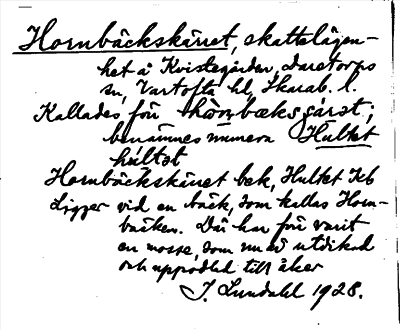 Hornbäckskärret, skattelägen-
het å Kvistegården, Daretorps
sn, Vartofta hd, Skarab. l.
Kallades för
benämnes numera Hultet
hultət
Hornbäckskärret bek, Hultet Kb
Ligger vid en bäck, som kallas Horn-
bäcken. Där har förr varit
en mosse, som nu är utdikad
och uppodlad till åker
J. Lundahl 1928.